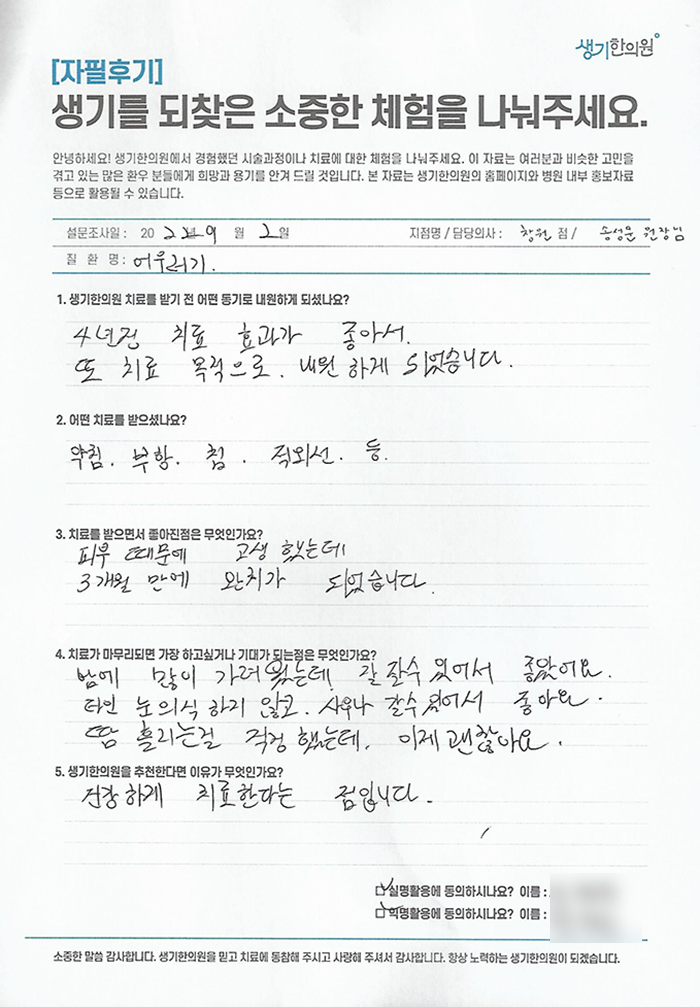 생기한의원
[자필후기]
생기를 되찾은 소중한 체험을 나눠주세요.
안녕하세요! 생기한의원에서 경험했던 시술과정이나 치료에 대한 체험을 나눠주세요. 이 자료는 여러분과 비슷한 고민을
겪고 있는 많은 환우 분들에게 희망과 용기를 안겨 드릴 것입니다. 본 자료는 생기한의원의 홈페이지와 병원 내부 홍보자료
등으로 활용될 수 있습니다.
설문조사일 : 20 22년 9 월 2 일 지점명 / 담당의사 : 창원 점 / 송성문 원장님
질 환 명 : 어우러기.
1. 생기한의원 치료를 받기 전 어떤 동기로 내원하게 되셨나요?
4년전 치료 효과가 좋아서.
또 치료 목적으로. 내원 하게 되었습니다.
2. 어떤 치료를 받으셨나요?
약침. 부항. 침. 적외선. 등.
3. 치료를 받으면서 좋아진점은 무엇인가요?
피부 때문에 고생 했는데
3개월 만에 완치가 되었습니다.
4. 치료가 마무리되면 가장 하고싶거나 기대가 되는점은 무엇인가요?
밤에 많이 가려웠는데, 잘 잘수 있어서 좋았어요.
타인 눈 의식 하지 않고. 사우나 갈수 있어서 좋아요.
땀 흘리는걸 걱정 했는데, 이제 괜찮아요.
5. 생기한의원을 추천한다면 이유가 무엇인가요?
건강하게 치료한다는 점입니다.
실명활용에 동의하시나요? 이름 :
익명활용에 동의하시나요? 이름 :
소중한 말씀 감사합니다. 생기한의원을 믿고 치료에 동참해 주시고 사랑해 주셔서 감사합니다. 항상 노력하는 생기한의원이 되겠습니다.